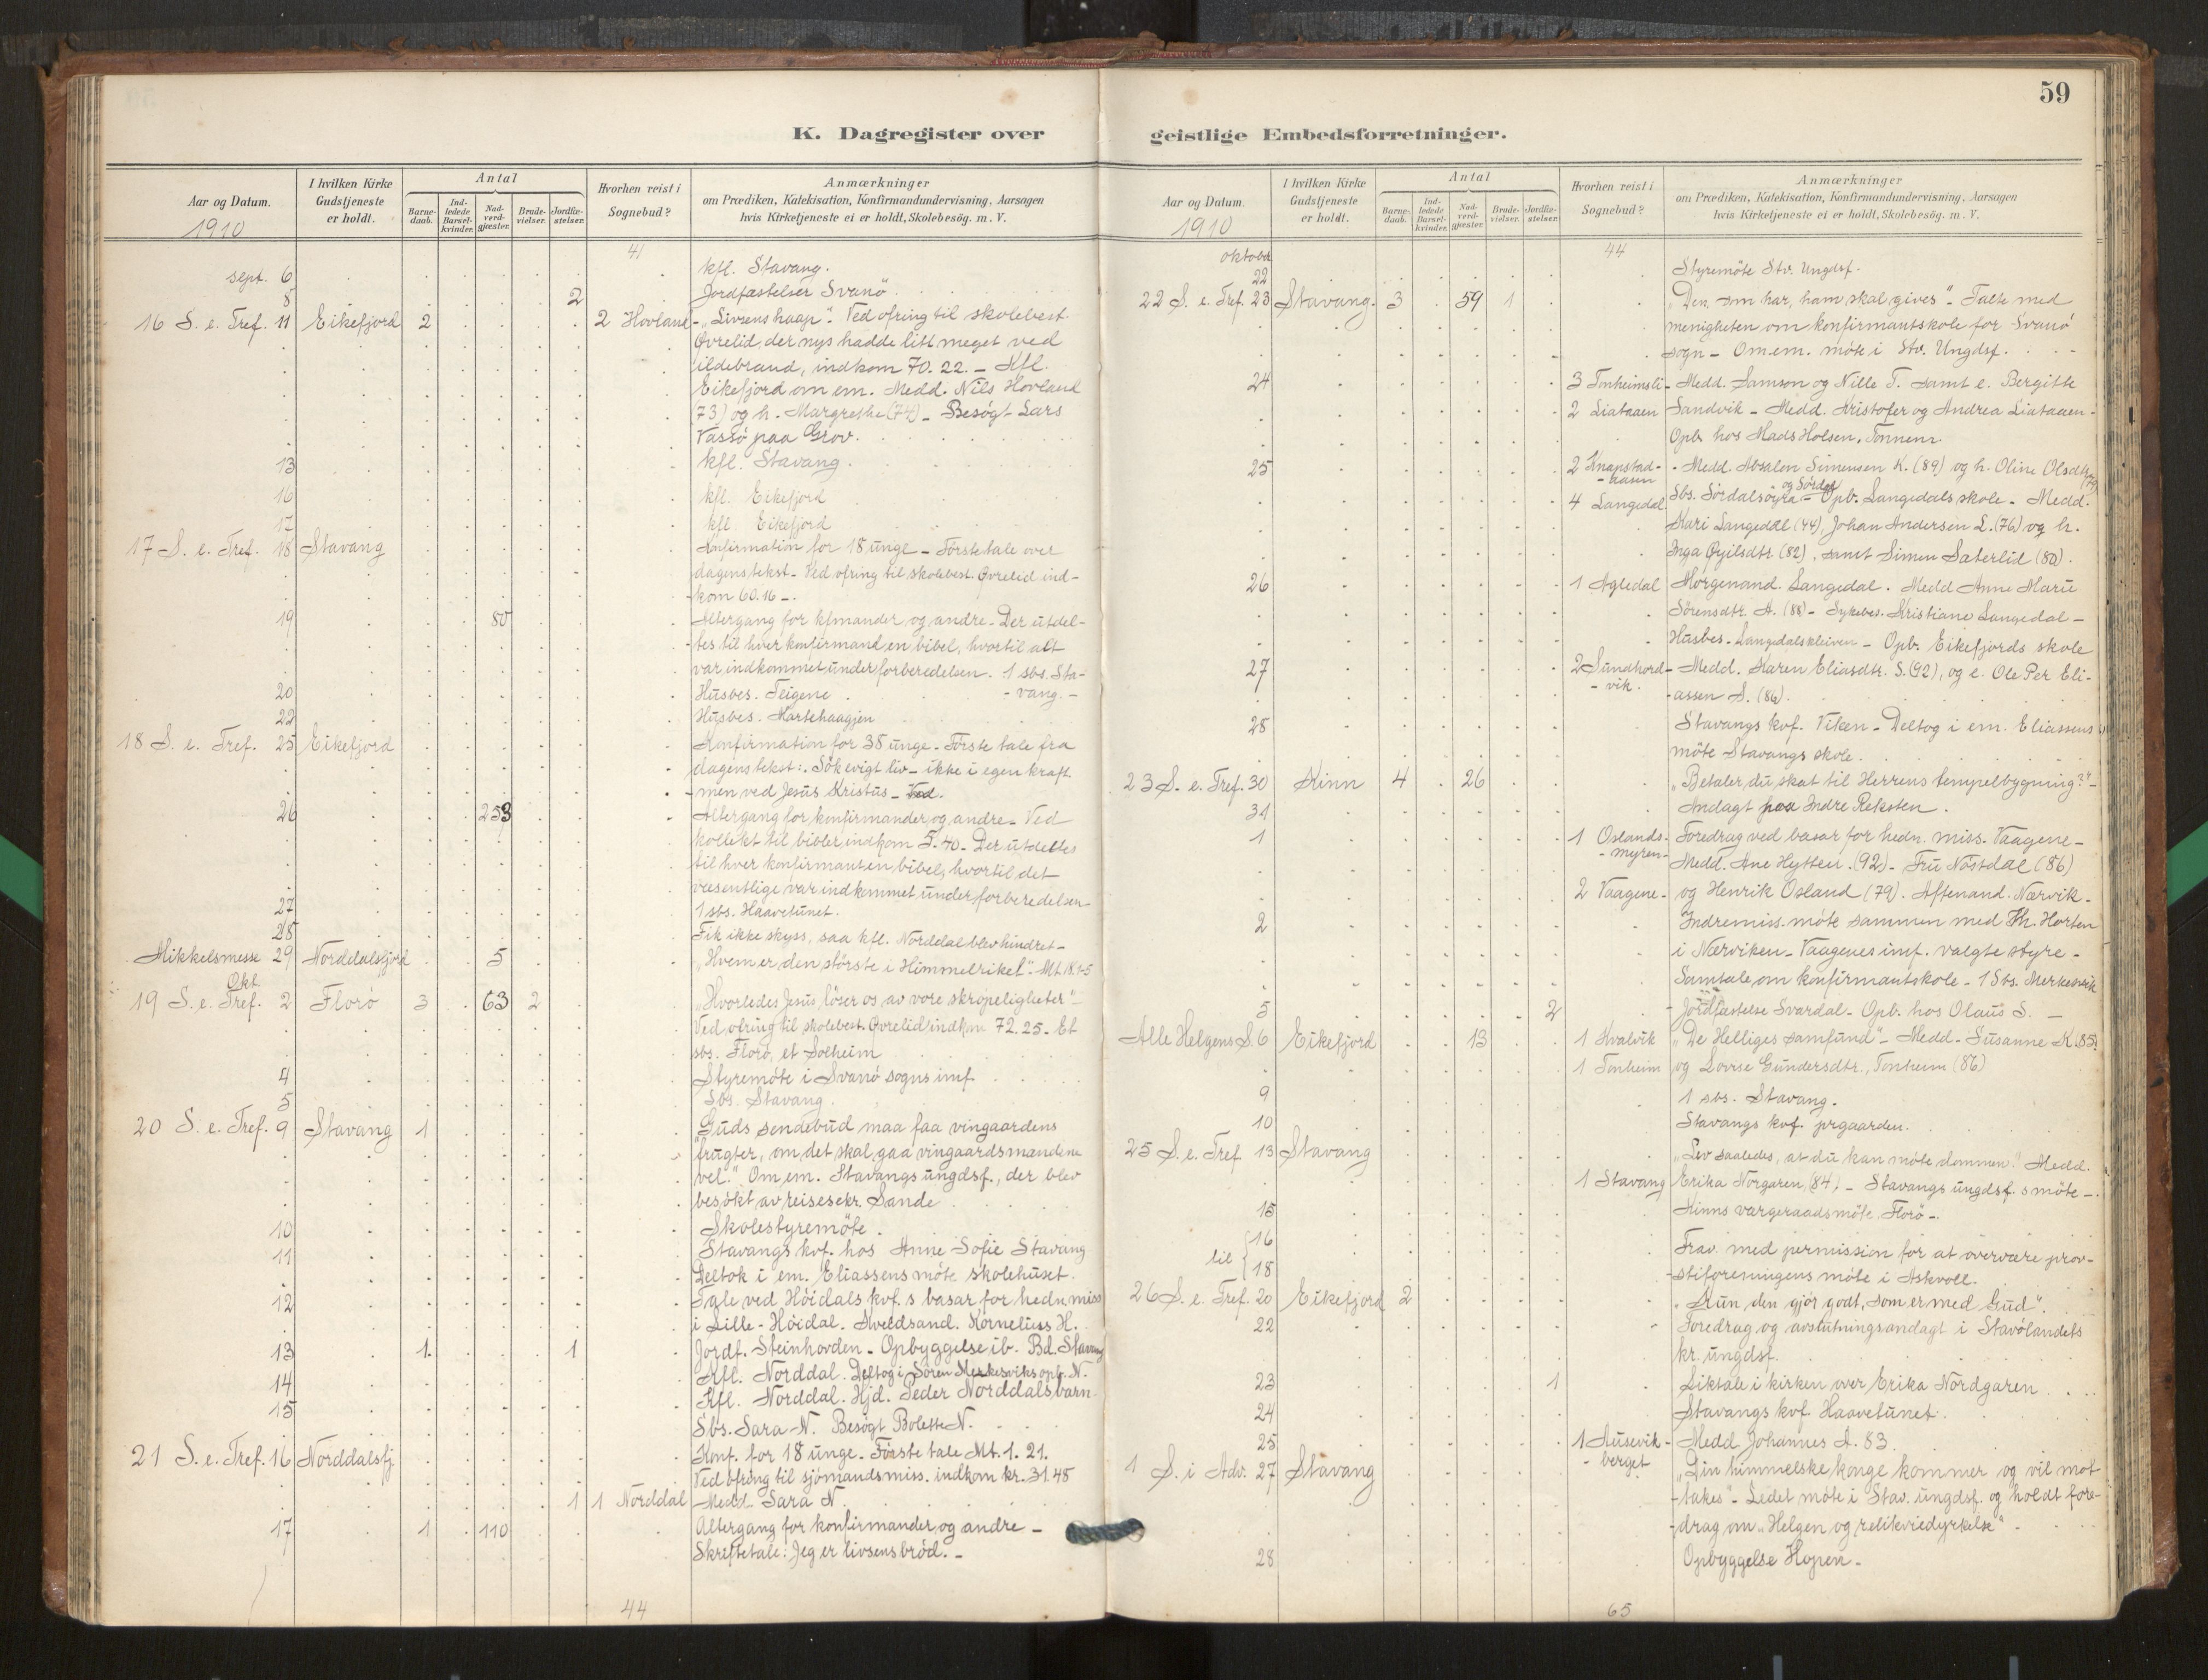 59
K. Dagregister over
geistlige Embedsforretninger.
Aar og Datum.
1910
I hvilken Kirke Gudstjeneste er holdt.
Antal
Barnedaab.
Indledede Barselkvinder.
Nadverdgjæster.
Brudevielser.
Jordfæstelser.
Hvorhen reist i Sognebud?
Anmærkninger
om Prædiken, Katekisation, Konfirmandundervisning, Aarsagen
hvis Kirketjeneste ei er holdt, Skolebesög. m. V.
41
sept. 6 kfl. Stavang.
8 2 Jordfæstelser Svanö
16 S. e. Tref. 11 Eikefjord 2 2 Hovland - "Livsens haap". Ved ofring til skolebest.
Övrelid, der nys hadde litt meget ved
ildebrand, indkom 70.22. - Kfl.
Eikefjord om em. Medd. Nils Hovland
(73) og h. Margrethe (74) - Besögt Lars
Vassö paa Grov.
13 kfl. Stavang.
16 kfl. Eikefjord
17 kfl. Eikefjord
17 S. e. Tref. 18 Stavang Konfirmation for 18 unge - Förste tale over
dagens tekst - Ved ofring til skolebest. Övrelid ind-
-kom 60.16 -.
19 80 Altergang for kfmander og andre - Der utdel-
-tes til hver konfirmand en bibel, hvortil alt
var indkommet under forberedelsen. 1 sbs. Sta-
20 Husbes. Teigene - vang. -
22 Husbes. Martehaagjen
18 S. e. Tref. 25 Eikefjord Konfirmation for 38 unge - Förste tale fra
dagens tekst: Sök evigt liv - ikke i egen kraft
- men ved Jesus Kristus -
26 253 Altergang for konfirmander og andre - Ved
kollekt til bibler indkom 5.40 - Der utdeltes
til hver konfirmant en bibel, hvortil det
væsentlige var indkommet under forberedelsen
27 1 sbs. Haavetunet.
28 Fik ikke skyss, saa kfl. Norddal blev hindret -
Mikkelsmesse 29 Norddalsfjord 5 "Hvem er den störste i Himmelriket". Mt. 18.1-5
Okt.
19 S. e. Tref. 2 Florö 3 63 2 "Hvorledes Jesus löser os av vore skröpeligheter" -
Ved ofring til skolebest. Övrelid indkom 72.25. Et
sbs. Florö, et Solheim
4 Styremöte i Svanö sogns imf.
5 Sbs. Stavang.
20 S. e. Tref. 9 Stavang 1 "Guds sendebud maa faa vingaardens
frugter, om det skal gaa vingaardsmændene
vel." Om em. Stavangs ungdsf., der blev
besökt av reisesekr. Sande
10 Skolestyremöte.
11 Stavangs kvf. hos Anne Sofie Stavang
Deltok i em. Eliassens möte skolehuset.
12 Tale ved Höidals kvf.s basar for hedn. miss
i Lille-Höidal. Kveldsand. Kornelius H.
13 1 1 Jordf. Steinhovden - Opbyggelse ib. Bd. Stavang
14 Kfl. Norddal. Deltog i Sören Merkesviks opb. N.
15 Kfl. Norddal. Hjd. Peder Norddals barn
Sbs. Sara N. Besögt Bolette N.
21 S. e. Tref. 16 Norddalsfj. Konf. for 18 unge. Förste tale Mt. 1. 21.
Ved ofring til sjömandsmiss. indkom kr. 31.48
1 1 Norddal - Medd. Sara N.
17 1 110 Altergang for konfirmander og andre -
Skriftetale: Jeg er livsens bröd. -
44
Aar og Datum.
1910
I hvilken Kirke Gudstjeneste er holdt.
Antal
Barnedaab.
Indledede Barselkvinder.
Nadverdgjæster.
Brudevielser.
Jordfæstelser.
Hvorhen reist i Sognebud?
Anmærkninger
om Prædiken, Katekisation, Konfirmandundervisning, Aarsagen
hvis Kirketjeneste ei er holdt, Skolebesög. m. V.
44
oktober
22 Styremöte Stv. Ungdsf.
22 S. e. Tref. 23 Stavang. 3 59 1 "Den, som har, ham skal gives" - Talte med
menigheten om konfirmantskole for Svanö
sogn - Om em. möte i Stv. Ungdsf.
24 3 Tonheimsli - Medd. Samson og Nille T. samt e. Bergitte
2 Liataaen Sandvik - Medd. Kristofer og Andrea Liataaen -
Opb. hos Mads Holsen,
25 2 Knapstad- - Medd. Absalon Simensen K. (89) og h. Oline Olsdtr. (79)
- aasen
og Sördal
4 Langedal Sbs. Sördalsöyra - Opb. Langedals skole - Medd.
Kari Langedal (44), Johan Andersen L. (76) og h.
Inga (82), samt Simen Sæterlid (80).
26 1 Agledal Morgenand. Langedal. Medd Anne Marie
Sörensdtr. A. (88) - Sykebes. Kristiane Langedal -
Husbes. Langedalskleiven - Opb. Eikefjords skole
27 2 Sundhord- - Medd. Karen Eliasdtr. S. (92), og e. Ole Per Eli-
- vik. -assen S. (86).
28 Stavangs kvf. Viken - Deltog i em. Eliassens
möte Stavangs skole.
23 S. e. Tref. 30 Kinn 4 26 "Betaler du skat til Herrens tempelbygning?" -
31 Andagt paa Indre Reksten.
1 1 Oslands- Foredrag ved basar for hedn. miss. Vaagene -
- myren - Medd. Ane Hytten (92) - Fru Nöstdal (86)
2 Vaagene - og Henrik Osland (79). Aftenand. Nærvik -
2 Indremiss. möte sammen med Th. Horten
i Nærviken - Vaagenes imf. valgte styre -
Samtale om konfirmantskole - 1 Sbs. Merkesvik
5 2 Jordfæstelse Svardal - Opb. hos Olaus S. -
Alle Helgens S. 6 Eikefjord 13 1 Kvalvik "De Helliges samfund" - Medd. Susanne K (85)
1 Tonheim og Lovise Gundersdtr., Tonheim (86)
9 1 sbs. Stavang.
10 Stavangs kvf. prgaarden.
25 S. e. Tref. 13 Stavang "Lev saaledes, at du kan möte dommen." Medd.
1 Stavang Erika Norgaren (84) - Stavangs ungdsf.s möte -
15 Kinns vergeraadsmöte Florö -
til {16 18 Frav. med permission for at overvære prov-
-stiforeningens möte i Askvoll.
26 S. e. Tref. 20 Eikefjord 2 "Kun den gjör godt, som er med Gud".
22 Foredrag og avslutningsandagt i Stavölandets
kr. ungdsf.
23 1 Liktale i kirken over Erika Nordgaren
24 Stavangs kvf. Haavetunet.
25 1 Husevik- - Medd. Johannes A. 83.
- berget
1 S. i Adv. 27 Stavang "Din himmelske konge kommer og vil mot-
-takes" - Ledet möte i Stav. ungdsf. og holdt fore-
-drag om "Helgen og relikviedyrkelse"
28 Opbyggelse Hopen -
65